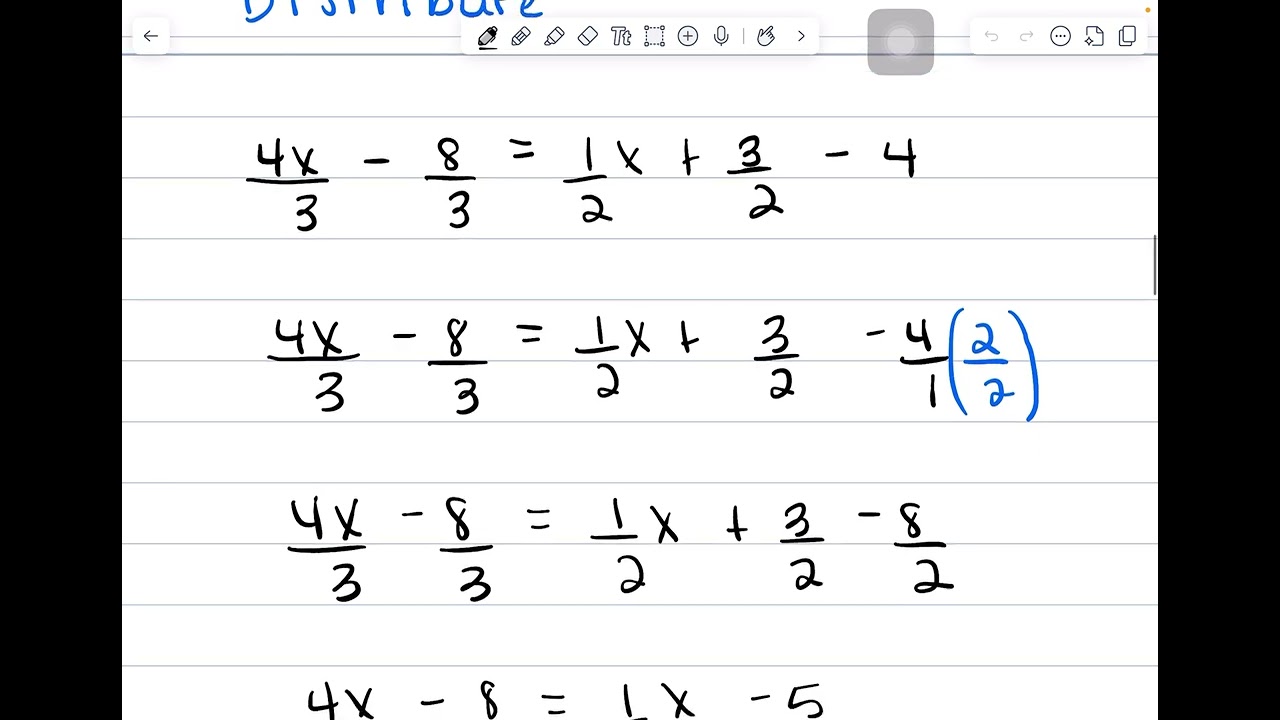 Distribute
Tt
4x/3 - 8/3 = 1/2 x + 3/2 - 4
4x/3 - 8/3 = 1/2 x + 3/2 - 4/1 (2/2)
4x/3 - 8/3 = 1/2 x + 3/2 - 8/2
4x - 8 = 1 x - 5